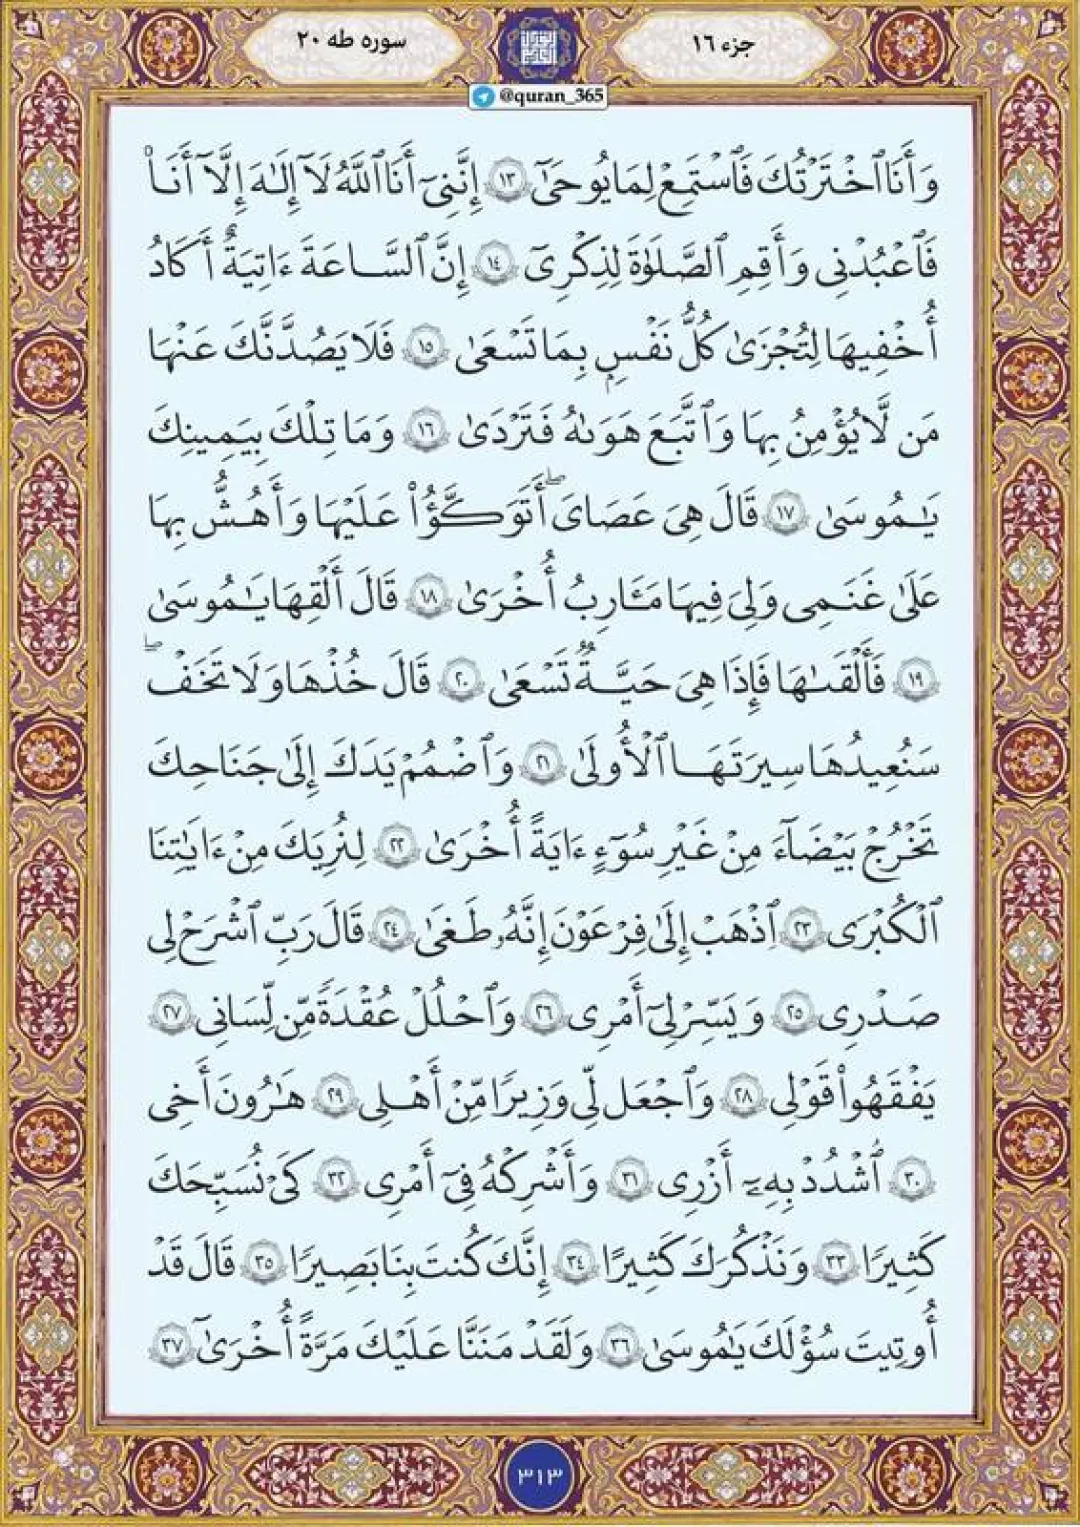 جزء ۱۶
سوره طه ۲۰
@quran_365
وَأَنَا ٱخْتَرْتُكَ فَٱسْتَمِعْ لِمَا يُوحَىٰٓ ۱۳ إِنَّنِىٓ أَنَا ٱللَّهُ لَآ إِلَٰهَ إِلَّآ أَنَا۠
فَٱعْبُدْنِى وَأَقِمِ ٱلصَّلَوٰةَ لِذِكْرِىٓ ۱٤ إِنَّ ٱلسَّاعَةَ ءَاتِيَةٌ أَكَادُ
أُخْفِيهَا لِتُجْزَىٰ كُلُّ نَفْسٍۭ بِمَا تَسْعَىٰ ۱٥ فَلَا يَصُدَّنَّكَ عَنْهَا
مَن لَّا يُؤْمِنُ بِهَا وَٱتَّبَعَ هَوَىٰهُ فَتَرْدَىٰ ۱٦ وَمَا تِلْكَ بِيَمِينِكَ
يَٰمُوسَىٰ ۱۷ قَالَ هِىَ عَصَاىَ أَتَوَكَّؤُا۟ عَلَيْهَا وَأَهُشُّ بِهَا
عَلَىٰ غَنَمِى وَلِىَ فِيهَا مَـَٔارِبُ أُخْرَىٰ ۱۸ قَالَ أَلْقِهَا يَٰمُوسَىٰ
۱۹ فَأَلْقَىٰهَا فَإِذَا هِىَ حَيَّةٌ تَسْعَىٰ ۲۰ قَالَ خُذْهَا وَلَا تَخَفْ ۖ
سَنُعِيدُهَا سِيرَتَهَا ٱلْأُولَىٰ ۲۱ وَٱضْمُمْ يَدَكَ إِلَىٰ جَنَاحِكَ
تَخْرُجْ بَيْضَآءَ مِنْ غَيْرِ سُوٓءٍ ءَايَةً أُخْرَىٰ ۲۲ لِنُرِيَكَ مِنْ ءَايَٰتِنَا
ٱلْكُبْرَى ۲۳ ٱذْهَبْ إِلَىٰ فِرْعَوْنَ إِنَّهُۥ طَغَىٰ ۲٤ قَالَ رَبِّ ٱشْرَحْ لِى
صَدْرِى ۲٥ وَيَسِّرْ لِىٓ أَمْرِى ۲٦ وَٱحْلُلْ عُقْدَةً مِّن لِّسَانِى ۲۷
يَفْقَهُوا۟ قَوْلِى ۲۸ وَٱجْعَل لِّى وَزِيرًا مِّنْ أَهْلِى ۲۹ هَٰرُونَ أَخِى
۳۰ ٱشْدُدْ بِهِۦٓ أَزْرِى ۳۱ وَأَشْرِكْهُ فِىٓ أَمْرِى ۳۲ كَىْ نُسَبِّحَكَ
كَثِيرًا ۳۳ وَنَذْكُرَكَ كَثِيرًا ۳٤ إِنَّكَ كُنتَ بِنَا بَصِيرًا ۳٥ قَالَ قَدْ
أُوتِيتَ سُؤْلَكَ يَٰمُوسَىٰ ۳٦ وَلَقَدْ مَنَنَّا عَلَيْكَ مَرَّةً أُخْرَىٰٓ ۳۷
۳۱۳